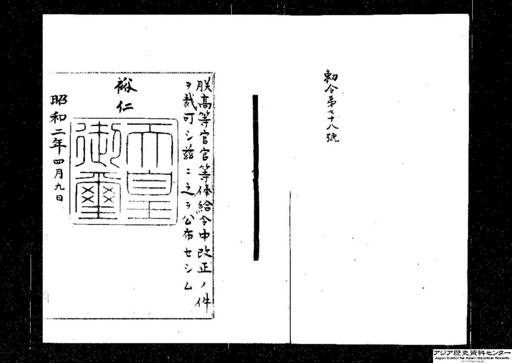 勅令第七十八號
朕高等官官等俸給令中改正ノ件
ヲ裁可シ茲ニ之ヲ公布セシム
裕仁
天皇
御璽
昭和二年四月九日
アジア歴史資料センター
Japan Center for Asian Historical Records